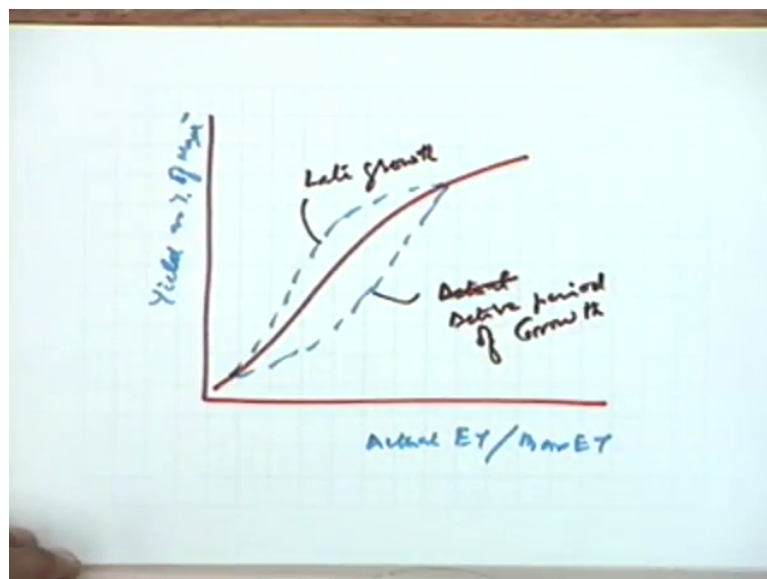 Yield as % of Max^m
Late growth
Actual
Active period
of Growth
Actual ET / Max ET